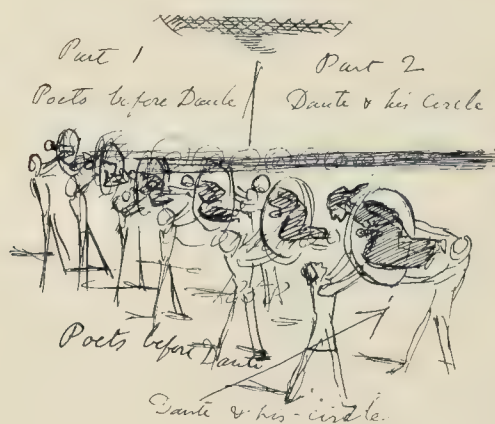 Part 1
Poets before Dante
Part 2
Dante & his Circle
Poets before Dante
Dante & his-circle.